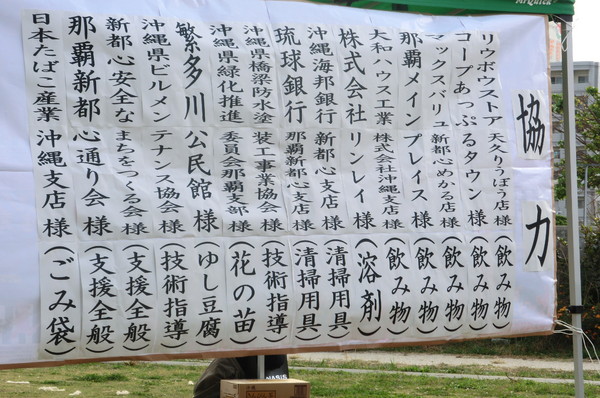 協力
リウボウストア 天久りうぼう店 様 (飲み物)
コープあっぷるタウン 様 (飲み物)
マックスバリュ 新都心めかる店 様 (飲み物)
那覇メインプレイス 様 (飲み物)
大和ハウス工業 株式会社沖縄支店 様 (飲み物)
株式会社 リンレイ 様 (溶剤)
沖縄海邦銀行 新都心支店 様 (清掃用具)
琉球銀行 那覇新都心支店 様 (清掃用具)
沖縄県橋梁防水塗装工事業協会 様 (技術指導)
沖縄県緑化推進委員会那覇支部 様 (花の苗)
繁多川公民館 様 (ゆし豆腐)
沖縄県ビルメンテナンス協会 様 (技術指導)
新都心安全なまちをつくる会 様 (支援全般)
那覇新都心通り会 様 (支援全般)
日本たばこ産業 沖縄支店 様 (ごみ袋)